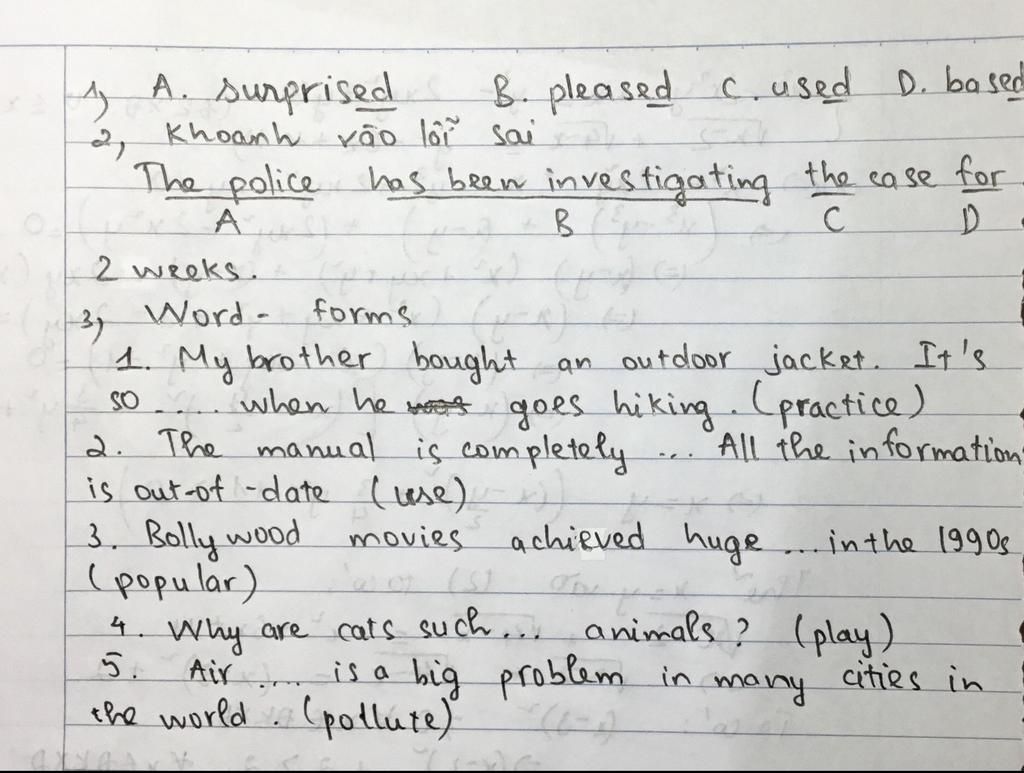 1, A. surprised B. pleased C. used D. based
2, Khoanh vào lỗi sai
The police has been investigating the case for
A B C D
2 weeks.
3, Word - forms
1. My brother bought an outdoor jacket. It's
so .... when he goes hiking. (practice)
2. The manual is completely ... All the information
is out-of-date (use)
3. Bollywood movies achieved huge ... in the 1990s
(popular)
4. Why are cats such... animals? (play)
5. Air .... is a big problem in many cities in
the world. (pollute)